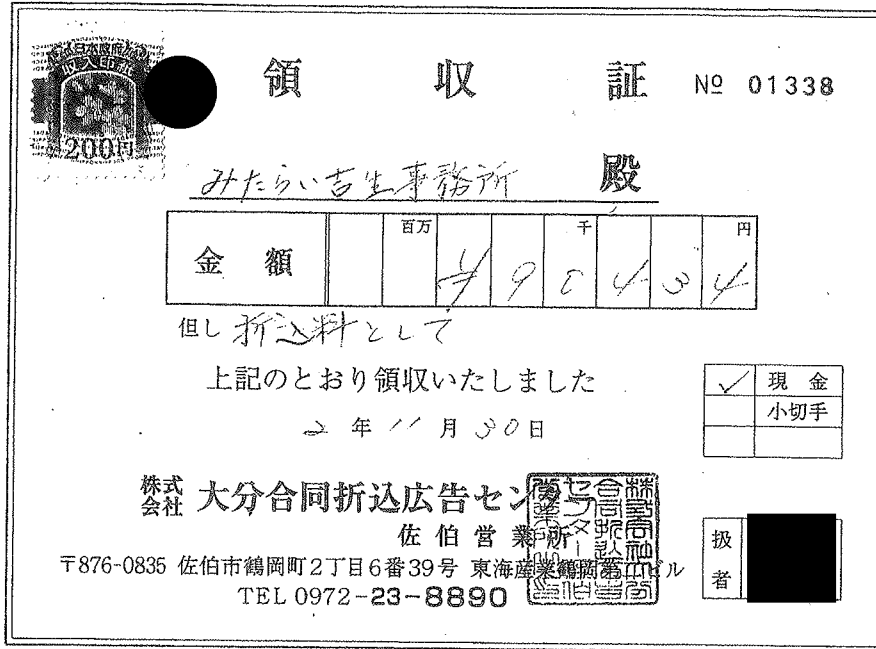 日本政府
収入印紙
200円
領収証 № 01338
みたらい吉生事務所 殿
金額 百万 千 円
¥90434
但し 折込料として
上記のとおり領収いたしました
2年11月30日
✓ 現金
小切手
株式会社 大分合同折込広告センター
佐伯営業所
〒876-0835 佐伯市鶴岡町2丁目6番39号 東海産業鶴岡第二ビル
TEL 0972-23-8890
扱者